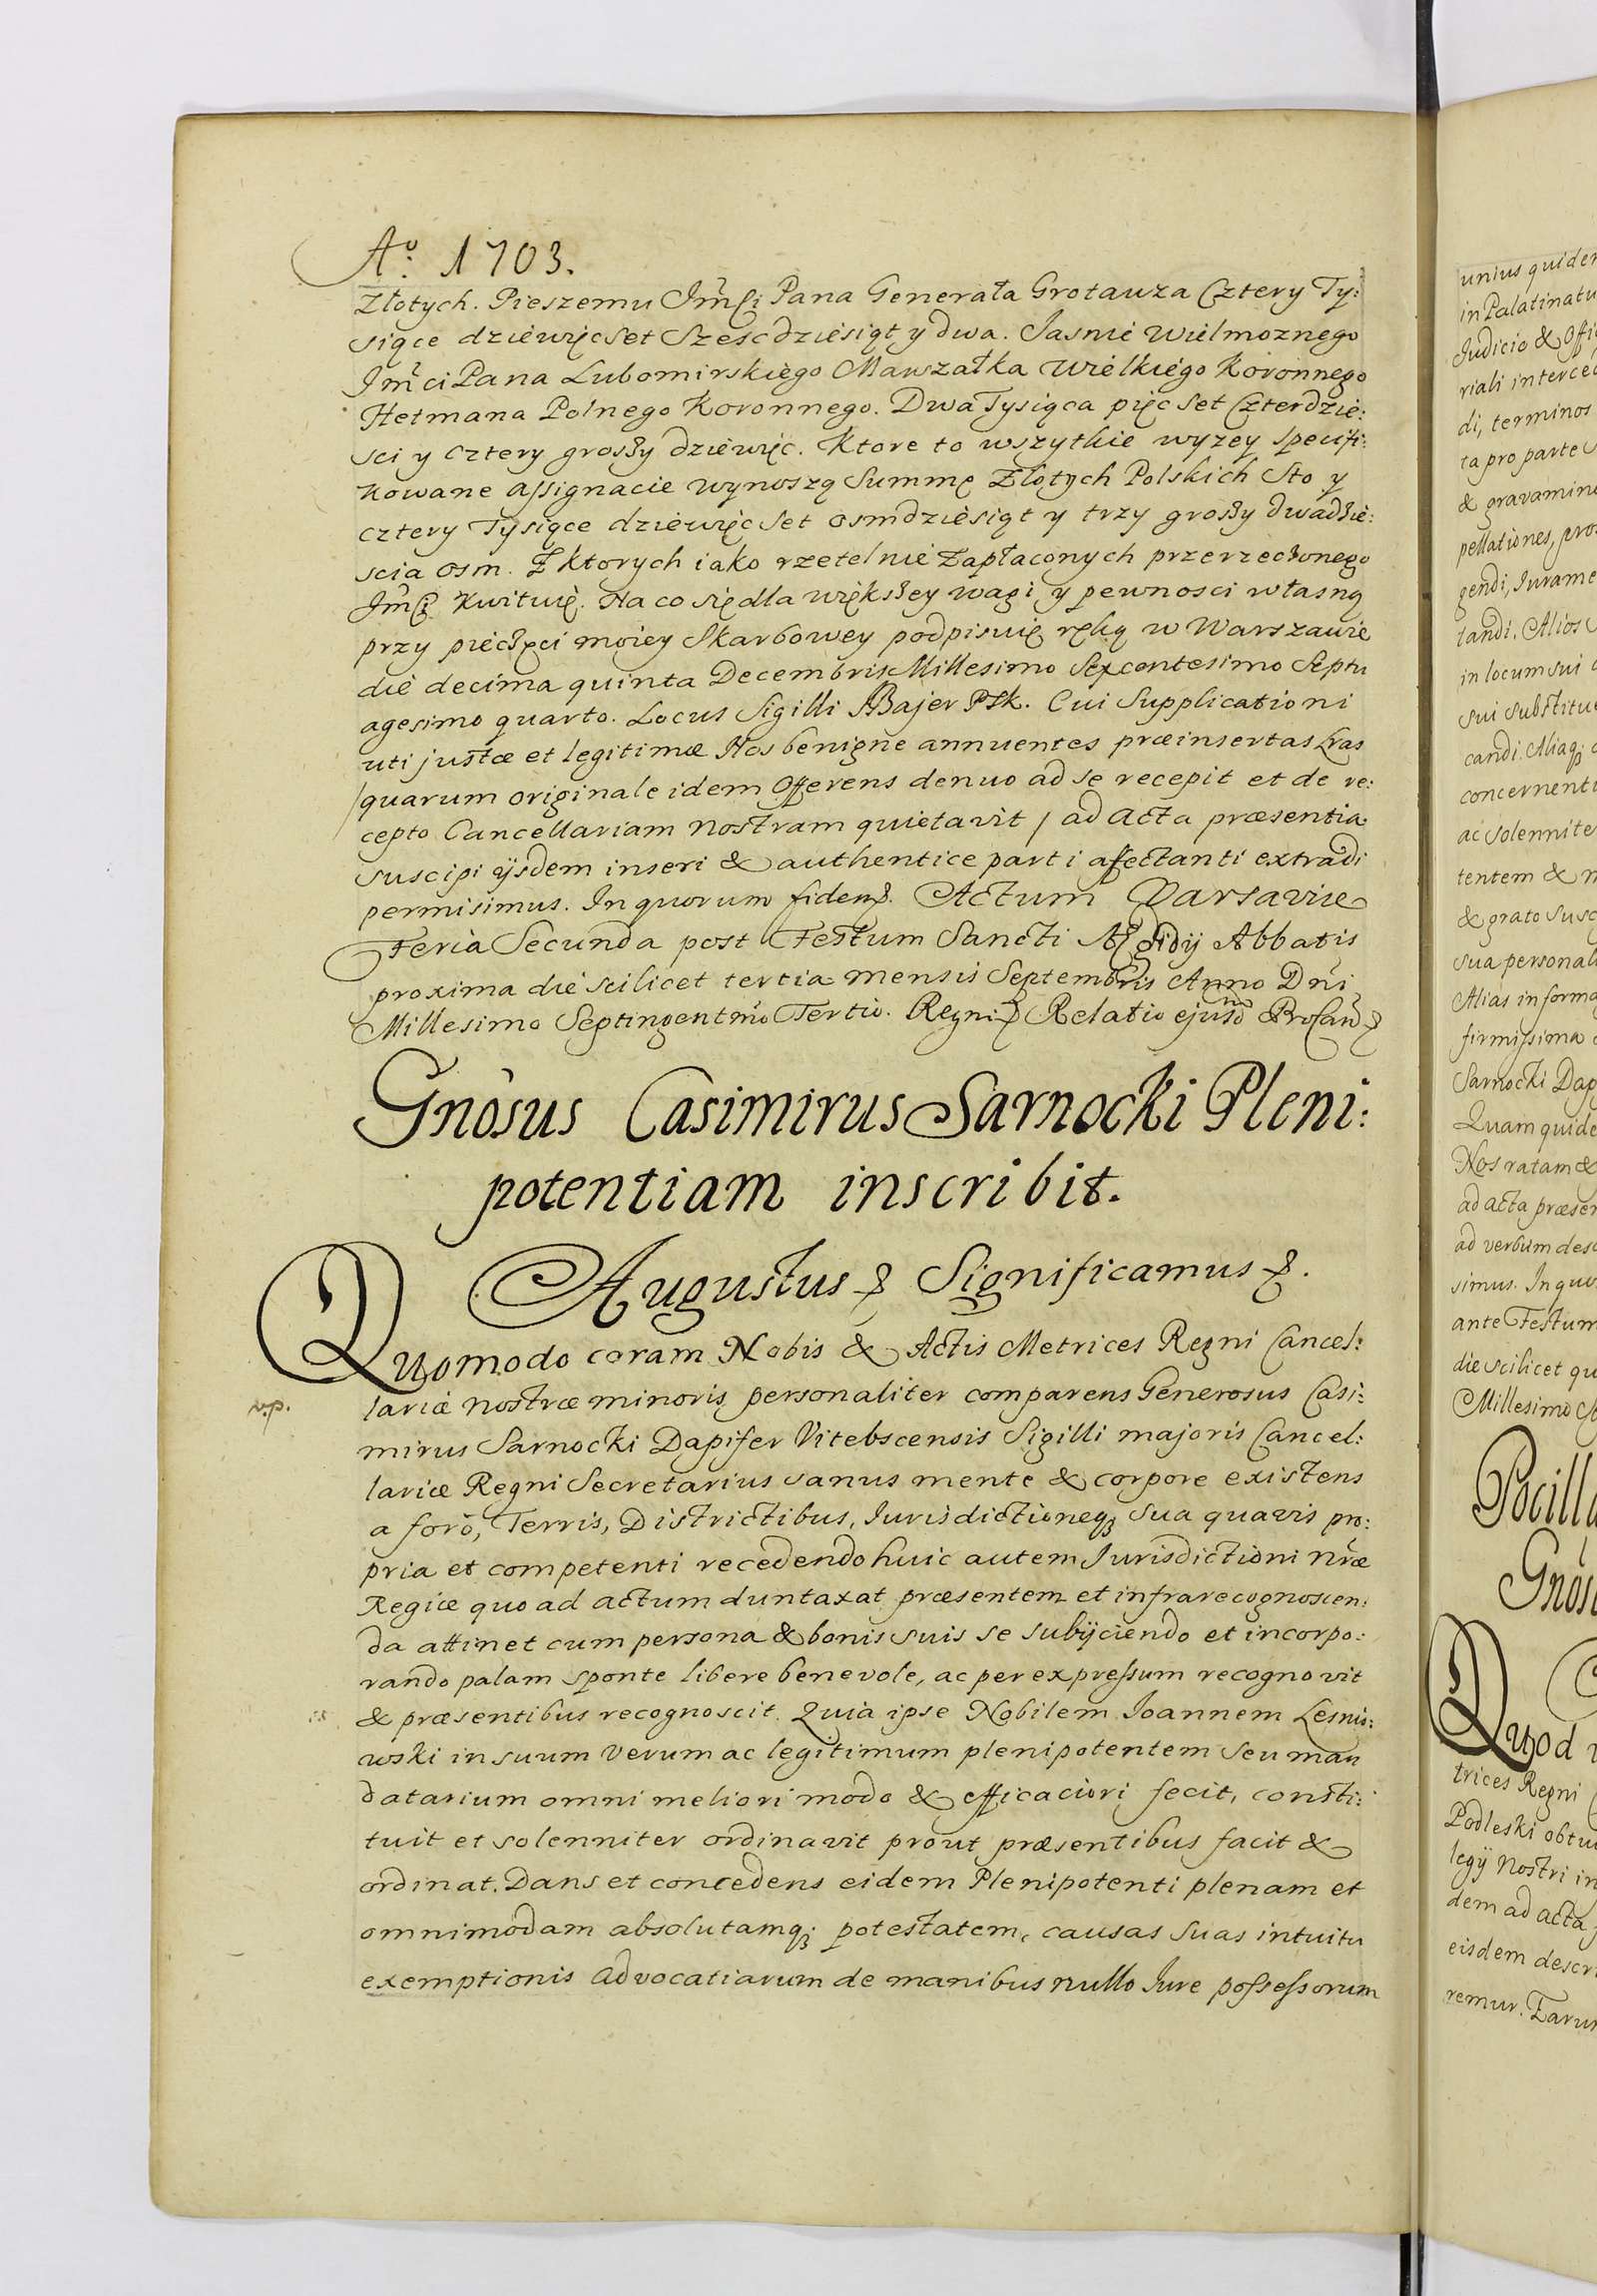 Aº. 1703.
Złotych. Pieszemu Jm̃ci Pana Generała Grotauza Cztery Ty:
siące dziewięcset Szescdziesiąt y dwa. Jasnie Wielmoznego
Jm̃ci Pana Lubomirskiego Marszałka Wielkiego Koronnego
Hetmana Polnego Koronnego. Dwa Tysiąca pięcset Czterdzie:
sci y cztery groszy dziewięc. Ktore to wszytkie wyzey specifi:
kowane assignacie wynoszą Summę Złotych Polskich Sto y
cztery Tysiące dziewięcset osmdziesiąt y trzy groszy dwadzie:
scia osm. Z ktorych iako rzetelnie zapłaconych przerzeczonego
Jm̃ci Kwituię. Na co się dla większey wagi y pewnosci własną
przy pieczęci moiey Skarbowey podpisuię ręką w Warszawie
die decima quinta Decembris Millesimo Sexcentesimo Septu
agesimo quarto. Locus Sigilli Bajer PSk. Cui Supplicationi
uti justæ et legitimæ Nos benigne annuentes præinsertas Lras
/quarum originale idem Offerens denuo ad se recepit et de re:
cepto Cancellariam nostram quietavit / ad Acta præsentia
suscipi ijsdem inseri & authentice parti affectanti extradi
permisimus. In quorum fidem ꝛ. Actum Varsaviæ
Feria Secunda post Festum Sancti Ægidij Abbatis
proxima die scilicet tertia mensis Septembris Anno Dñi
Millesimo Septingentm̃o Tertio. Regni ꝛ Relatio ejusd
Gñosus Casimirus Sarnocki Pleni:
potentiam inscribit.
Augustus ꝛ Significamus ꝛ.
Quomodo coram Nobis & Actis Metrices Regni Cancel:
v.p.
lariæ nostræ minoris personaliter comparens Generosus Casi:
mirus Sarnocki Dapifer Vitebscensis Sigilli majoris Cancel:
lariæ Regni Secretarius sanus mente & corpore existens
a foro, Terris, Districtibus, Jurisdictioneq; sua quavis pro:
pria et competenti recedendo huic autem Jurisdictioni nr̃æ
Regiæ quo ad actum duntaxat præsentem et infrarecognoscen:
da attinet cum persona & bonis suis se subijciendo et incorpo:
rando palam sponte libere benevole, ac per expressum recognovit
& præsentibus recognoscit. Quia ipse Nobilem Joannem Lesnie:
wski in suum verum ac legitimum plenipotentem seu man
datarium omni meliori modo & efficaciori fecit, consti:
tuit et solenniter ordinavit prout præsentibus facit &
ordinat. Dans et concedens eidem Plenipotenti plenam et
omnimodam absolutamq; potestatem, causas suas intuitu
exemptionis advocatiarum de manibus nullo Jure possessorum
unius quidem
in Palatinatu
Judicio & Offi
riali interced
di, terminos
ta pro parte
& gravamin
pellationes, pros
gendi, Jurame
landi. Alios
in locum sui
sui substitue
candi. Aliaq;
concernenti
ac solennite
tentem & n
& grato susc
sua personali
Alias informa
firmissima
Sarnocki Dap
Quam quide
Nos ratam &
ad acta præsen
ad verbum desc
simus. In quo
ante Festum
die scilicet qu
Millesimo
Pocilla
Gños
Quod
trices Regni
Podleski obtu
legij nostri in
dem ad acta
eisdem descri
remur. Earum